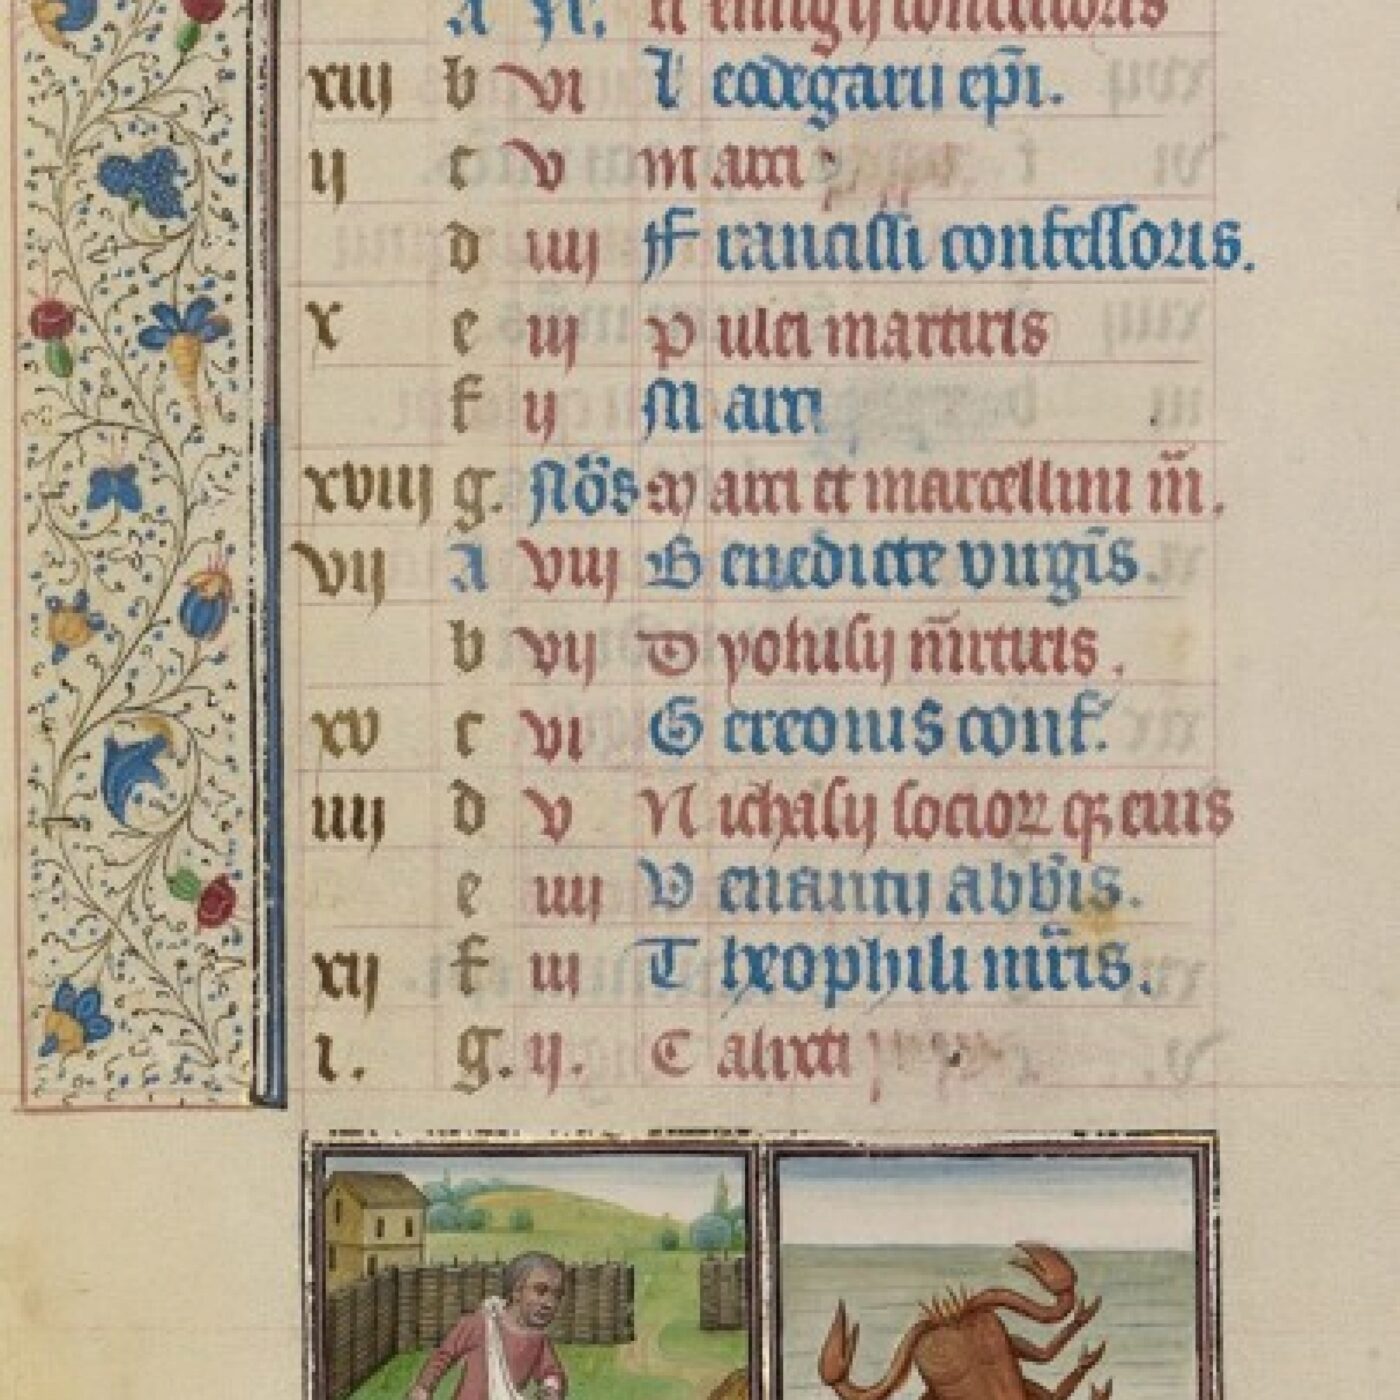 A N. Remigij confessoris
xiij b vi Leodegarii ep̄i.
ij c v Marci
d iiij Francissi confessoris.
x e iij Pulci martiris
f ij Marci
xviij g. Nōs Marci et marcellini m̄.
vij A viij Benedicte virgīs.
b vij Dyonisij m̄irtiris.
xv c vi Gereonis conf.
iiij d v Nichasij socior qꝫ eius
e iiij Venantij abb̄is.
xij f iij Theophili mr̄is.
i. g. ij. Calixti